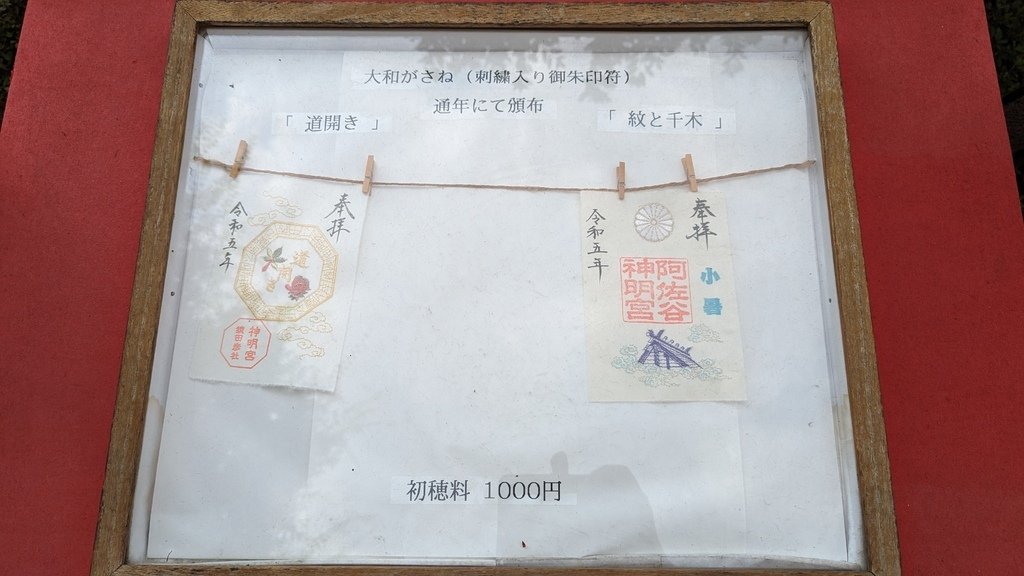 大和がさね（刺繍入り御朱印符）
通年にて頒布
「 道開き 」
「 紋と千木 」
奉拝
道開き
令和五年
神明宮
猿田彦社
奉拝
小暑
阿佐谷
神明宮
令和五年
初穂料 1000円